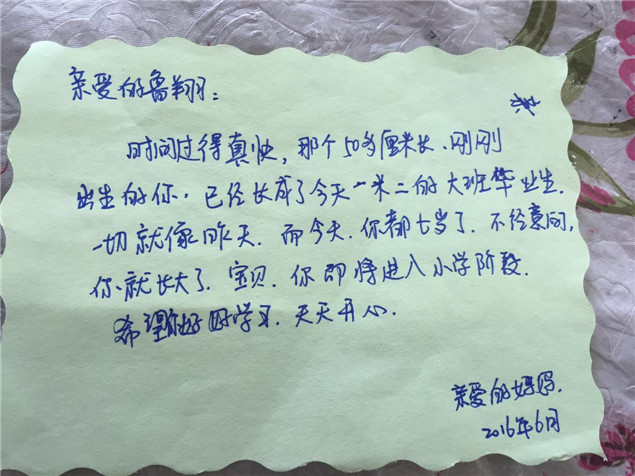 亲爱的鲁翔：
时间过得真快，那个50多厘米长、刚刚
出生的你，已经长成了今天一米二的大班毕业生.
一切就像昨天.而今天.你都七岁了.不经意间,
你就长大了.宝贝.你即将进入小学阶段.
希望你好好学习.天天开心.
亲爱的妈妈.
2016年6月